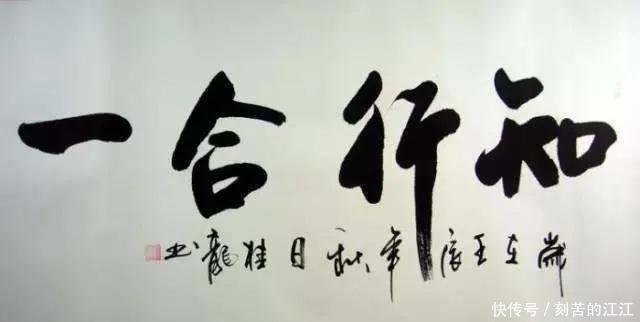 知行合一
歲在壬辰年秋日桂龍书
快传号/刻苦的江江